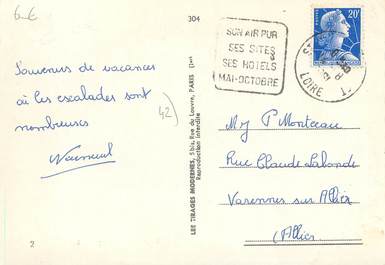 6€
304
SON AIR PUR
SES SITES
SES HOTELS
MAI-OCTOBRE
POSTES
20F
LOIRE
Souvenirs de vacances
où les escalades sont
nombreuses
(42)
LES TIRAGES MODERNES, 5 bis, Rue du Louvre, PARIS (1er)
Reproduction interdite
P Montceau
Rue Claude Labonde
Varennes sur Allier
(Allier)
2